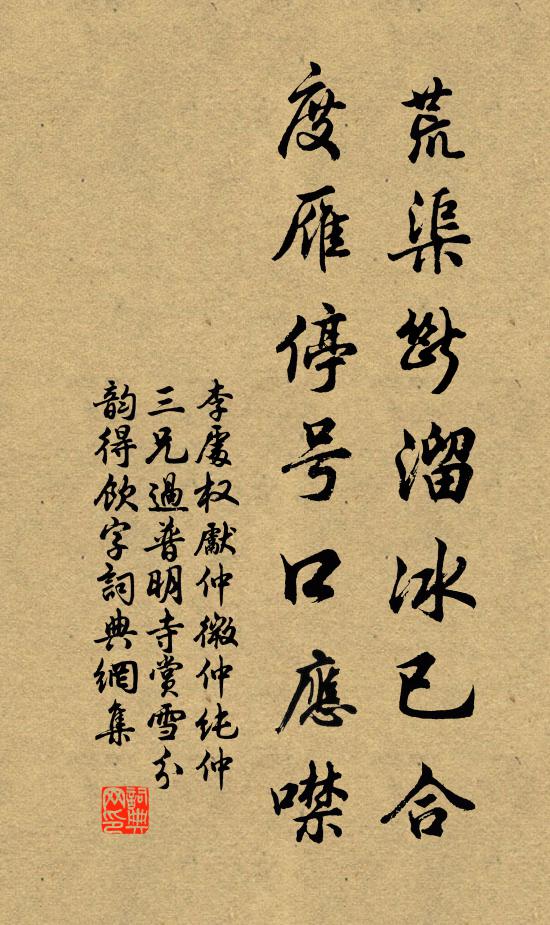 荒渠斷溜冰已合
度雁停号口應噤
李處权獻仲微仲纯仲
三兄過普明寺赏雪分
韵得飲字詞典網集
詞典网印